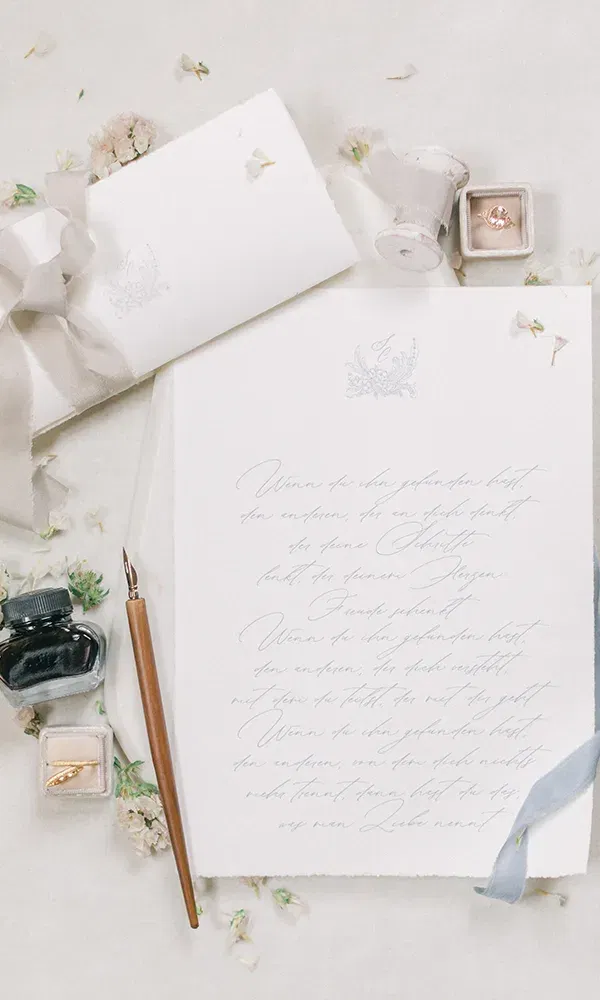 Wenn du ihn gefunden hast,
den anderen, der an dich denkt,
der deine Schritte
lenkt, der deinem Herzen
Freude schenkt
Wenn du ihn gefunden hast,
den anderen, der dich versteht,
mit dem du teilst, der mit dir geht
Wenn du ihn gefunden hast,
den anderen, von dem dich nichts
mehr trennt, dann hast du das,
was man Liebe nennt